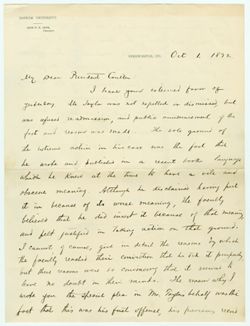 DEPAUW UNIVERSITY
GREENCASTLE, IND. Oct 1, 1892
My Dear President Coulter
I have your esteemed favor of
yesterday. Mr Taylor was not expelled or dismissed, but
was refused readmission, and public announcement of the
fact and reason was made. The sole ground of
the extreme action in his case was the fact that
he wrote and published in a recent book language
which he knew at the time to have a vile and
obscene meaning. Although he disclaimed having put
it in because of its worse meaning, the faculty
believed that he did insert it because of that meaning
and felt justified in taking action on that ground.
I cannot, of course, give in detail the reasons by which
the faculty reached their conviction that he did it purposely
but these reasons were so convincing that it seemed to
leave no doubt in their minds. The reason why I
wrote you the special plea in Mr Taylor's behalf was the
fact that this was his first offense, his previous record